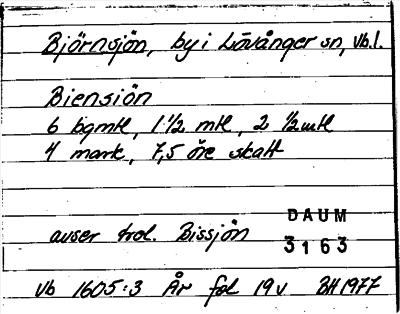 Björnsjön, by i Lövånger sn, Vb.l.
Biensiön
6 bgmtl, 1 1/2 mtl, 2 1/2 mtl
4 mark, 7,5 öre skatt
avser trol. Bissjön
DAUM
3163
Vb 1605:3 År fol 19v BH 1977